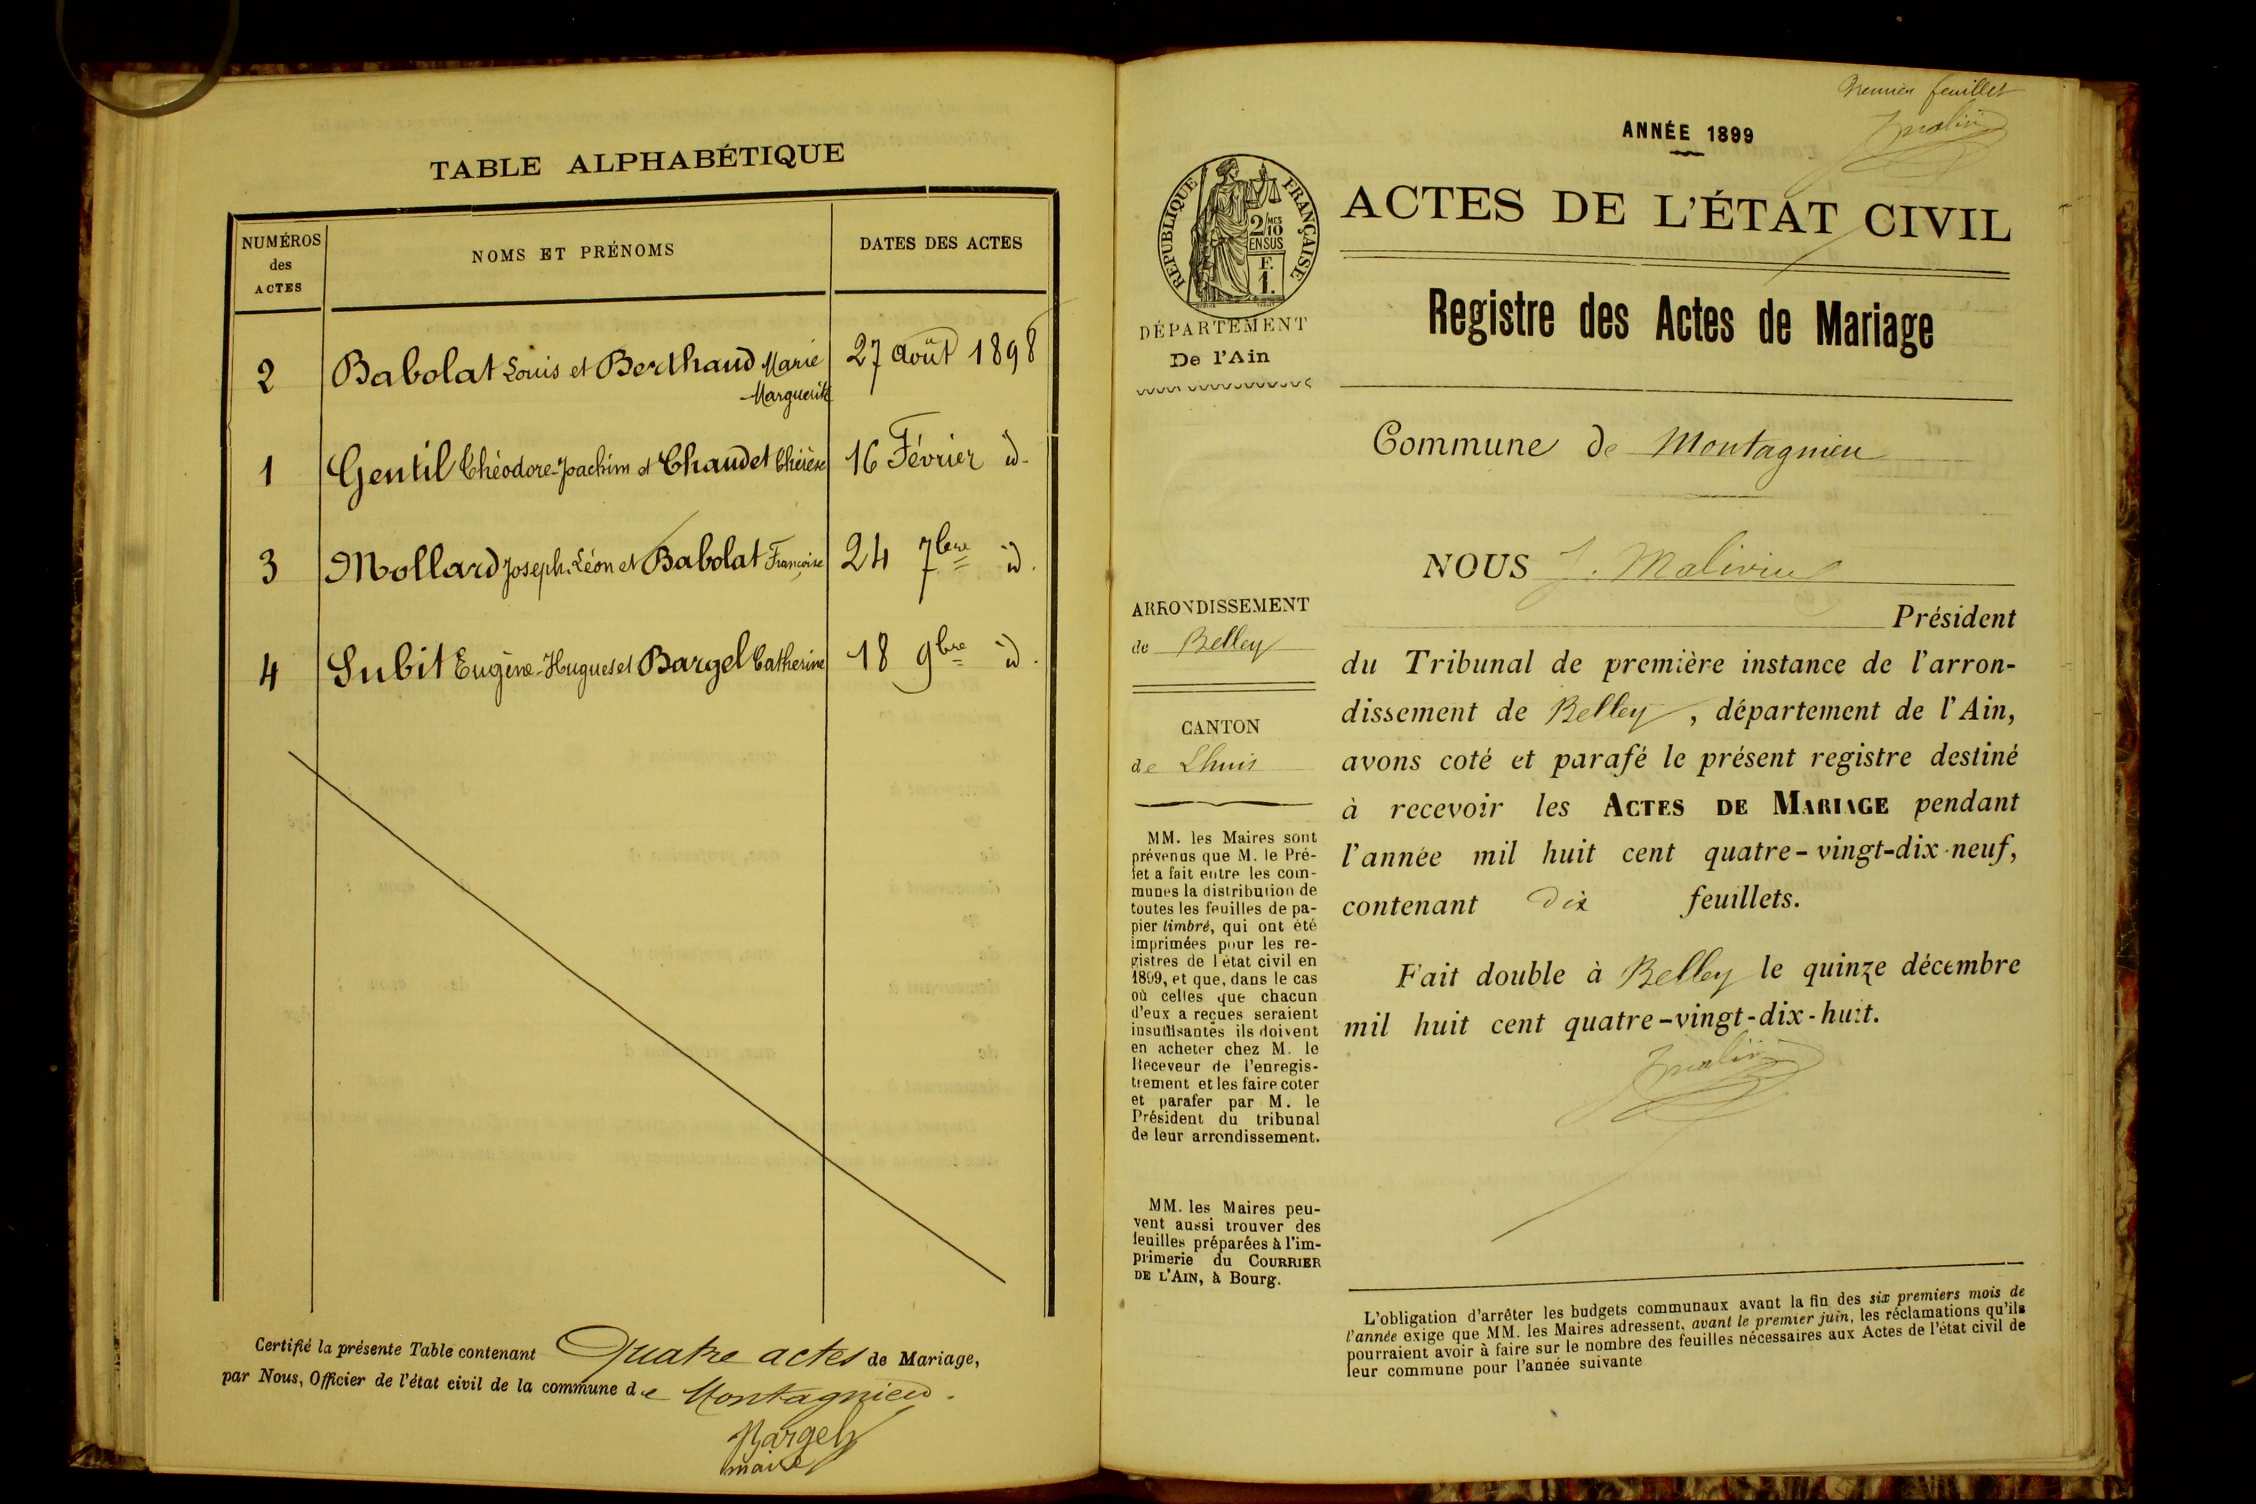 TABLE ALPHABÉTIQUE
NUMÉROS
des
ACTES
NOMS ET PRÉNOMS
DATES DES ACTES
2 Babolat Louis et Berthaud Marie 27 août 1898
Marguerite
1 Gentil Théodore-Joachim et Chaudet Thérèse 16 Février id.
3 Mollard Joseph-Léon et Babolat Françoise 24 7bre id.
4 Subit Eugène-Hugues et Bargel Catherine 18 9bre id.
Certifié la présente Table contenant Quatre actes de Mariage,
par Nous, Officier de l'état civil de la commune de Montagnieu.
Bargel
maire
Premier feuillet
ANNÉE 1899
RÉPUBLIQUE FRANÇAISE
2/10 MES
EN SUS
F.
1.
ACTES DE L'ÉTAT CIVIL
DÉPARTEMENT
De l'Ain
Registre des Actes de Mariage
Commune de Montagnieu
NOUS J. Malivin
Président
ARRONDISSEMENT
de Belley
CANTON
de Lhuis
du Tribunal de première instance de l'arron-
dissement de Belley, département de l'Ain,
avons coté et parafé le présent registre destiné
à recevoir les ACTES DE MARIAGE pendant
l'année mil huit cent quatre-vingt-dix-neuf,
contenant dix feuillets.
Fait double à Belley le quinze décembre
mil huit cent quatre-vingt-dix-huit.
MM. les Maires sont
prévenus que M. le Pré-
fet a fait entre les com-
munes la distribution de
toutes les feuilles de pa-
pier timbré, qui ont été
imprimées pour les re-
gistres de l'état civil en
1899, et que, dans le cas
où celles que chacun
d'eux a reçues seraient
insuffisantes ils doivent
en acheter chez M. le
Receveur de l'enregis-
trement et les faire coter
et parafer par M. le
Président du tribunal
de leur arrondissement.
MM. les Maires peu-
vent aussi trouver des
feuilles préparées à l'im-
primerie du COURRIER
DE L'AIN, à Bourg.
L'obligation d'arrêter les budgets communaux avant la fin des six premiers mois de
l'année exige que MM. les Maires adressent, avant le premier juin, les réclamations qu'ils
pourraient avoir à faire sur le nombre des feuilles nécessaires aux Actes de l'état civil de
leur commune pour l'année suivante